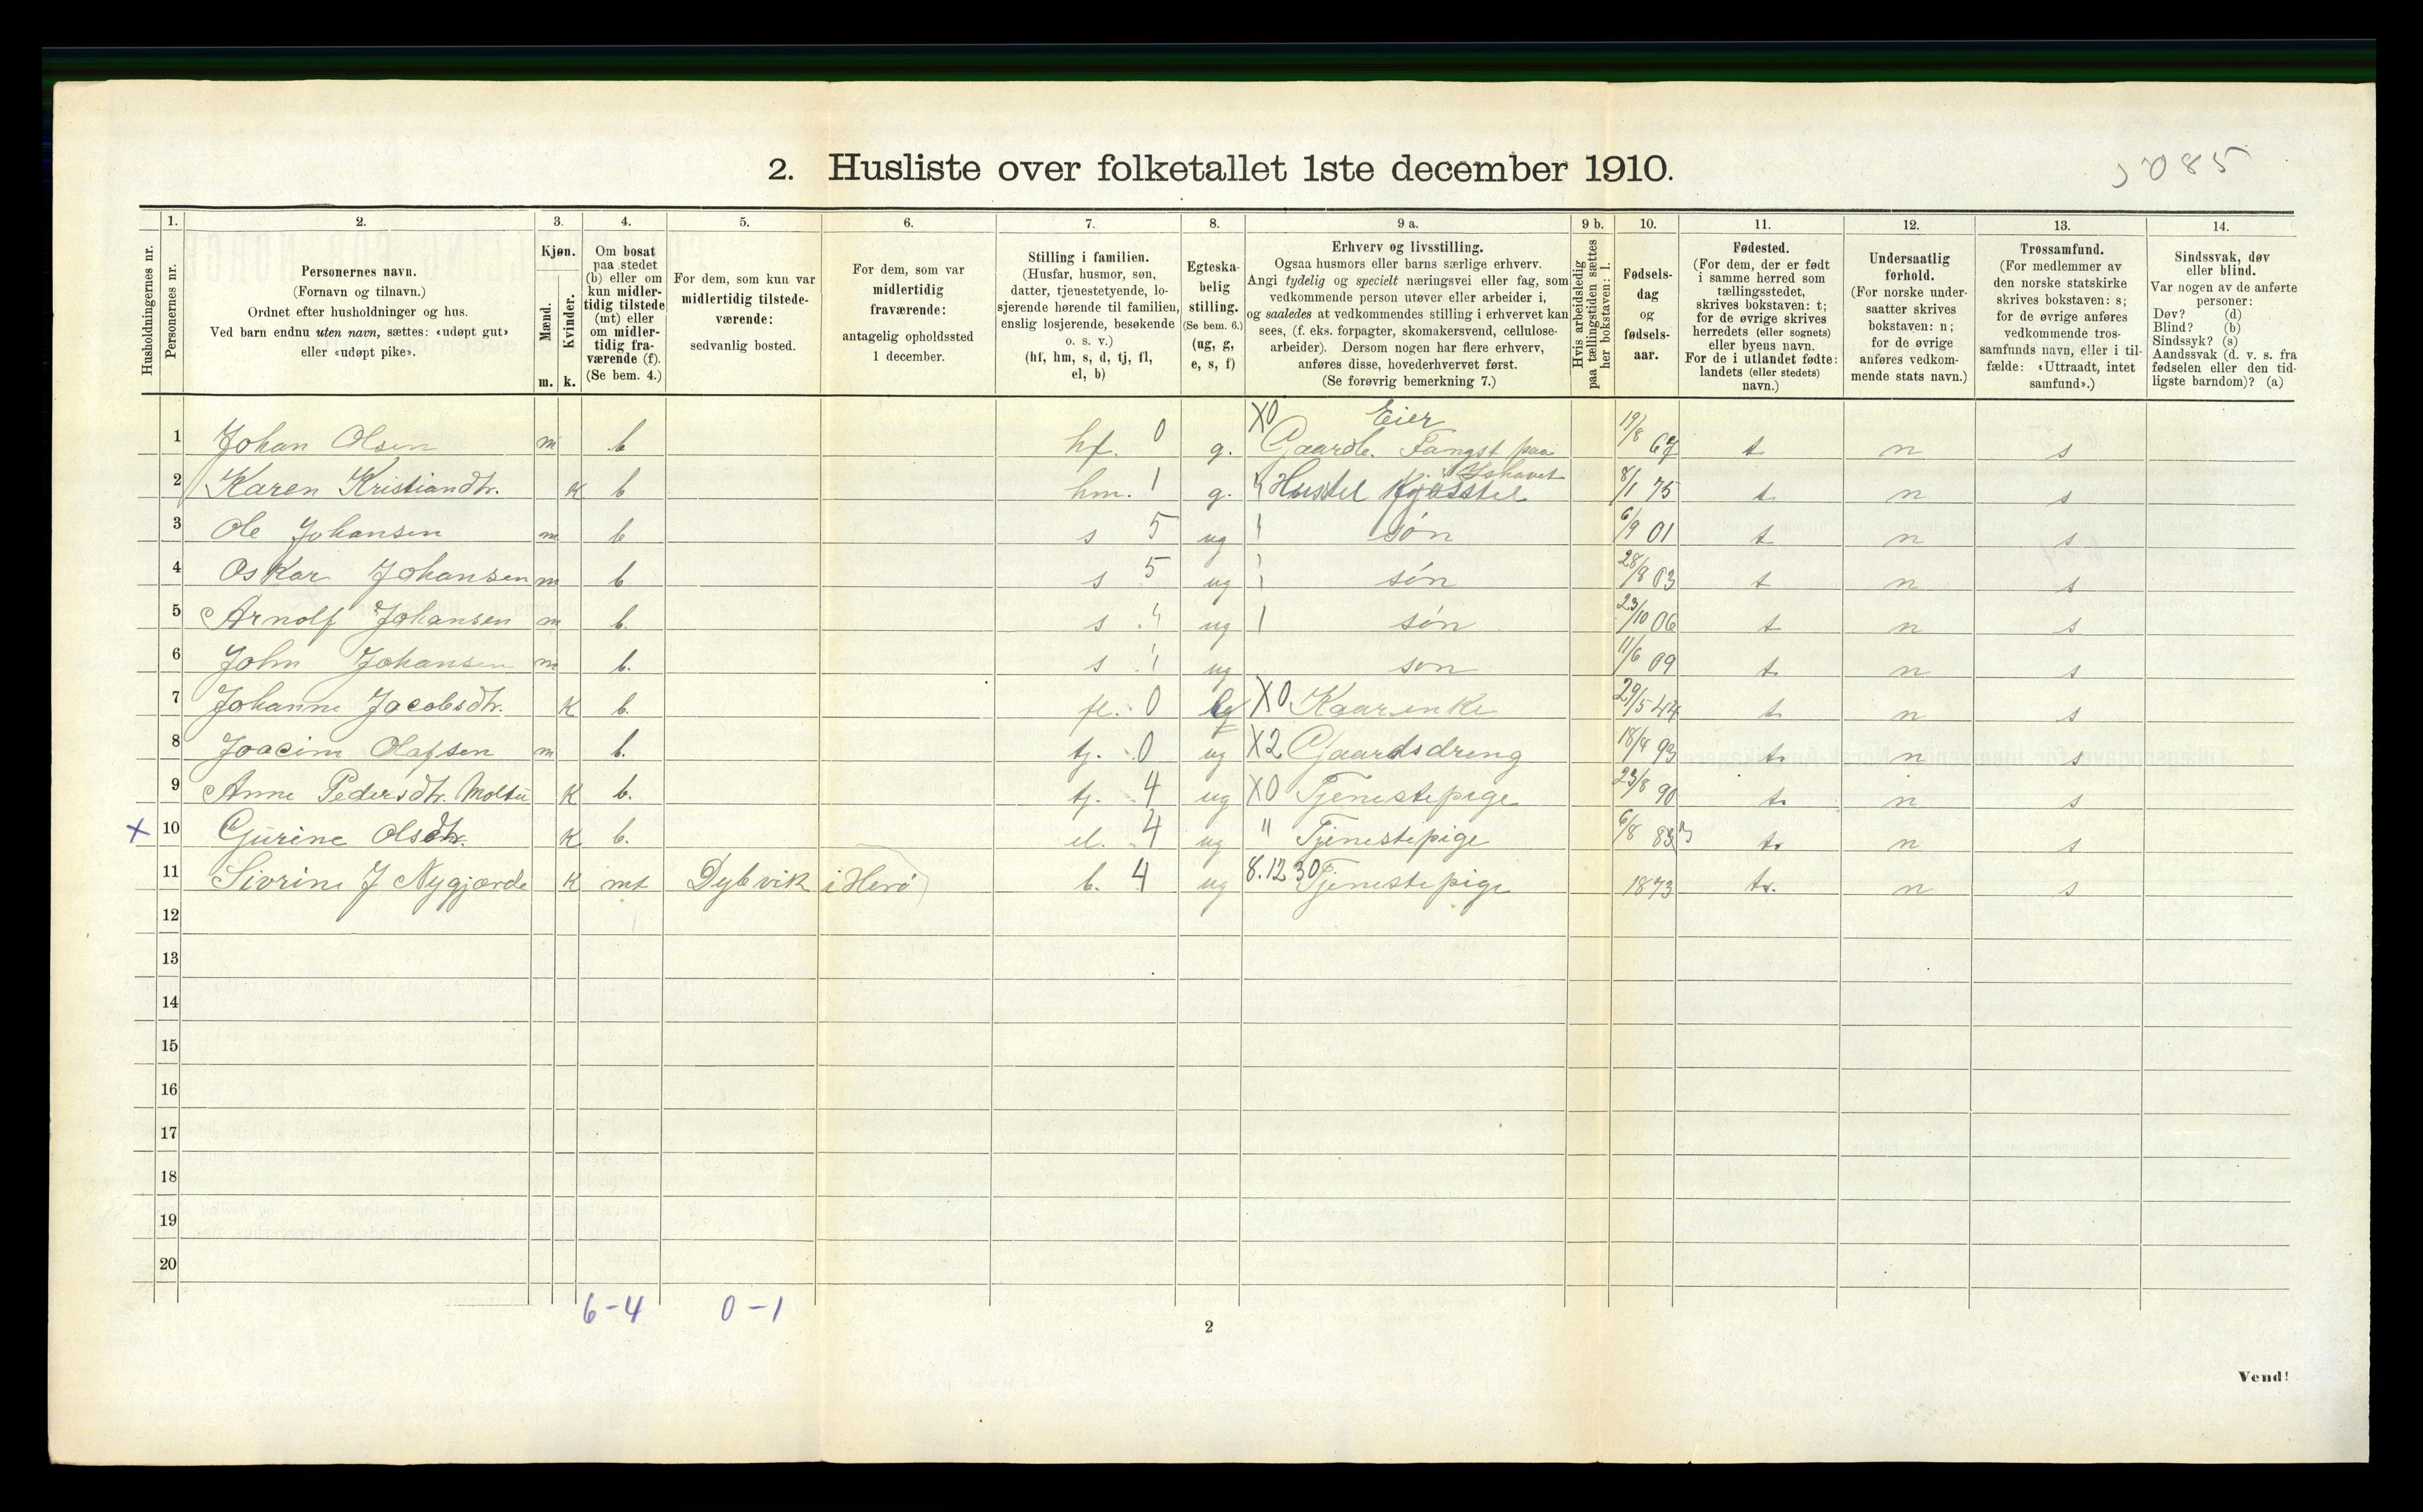 2. Husliste over folketallet 1ste december 1910.
5085
Husholdningernes nr.
1.
Personernes nr.
2.
Personernes navn.
(Fornavn og tilnavn.)
Ordnet efter husholdninger og hus.
Ved barn endnu uten navn, sættes: «udøpt gut»
eller «udøpt pike».
3.
Kjøn.
Mænd.
Kvinder.
m. k.
4.
Om bosat
paa stedet
(b) eller om
kun midler-
tidig tilstede
(mt) eller
om midler-
tidig fra-
værende (f).
(Se bem. 4.)
5.
For dem, som kun var
midlertidig tilstede-
værende:
sedvanlig bosted.
6.
For dem, som var
midlertidig
fraværende:
antagelig opholdssted
1 december.
7.
Stilling i familien.
(Husfar, husmor, søn,
datter, tjenestetyende, lo-
sjerende hørende til familien,
enslig losjerende, besøkende
o. s. v.)
(hf, hm, s, d, tj, fl,
el, b)
8.
Egteska-
belig
stilling.
(Se bem. 6.)
(ug, g,
e, s, f)
9 a.
Erhverv og livsstilling.
Ogsaa husmors eller barns særlige erhverv.
Angi tydelig og specielt næringsvei eller fag, som
vedkommende person utøver eller arbeider i,
og saaledes at vedkommendes stilling i erhvervet kan
sees, (f. eks. forpagter, skomakersvend, cellulose-
arbeider). Dersom nogen har flere erhverv,
anføres disse, hovederhvervet først.
(Se forøvrig bemerkning 7.)
9 b.
Hvis arbeidsledig
paa tællingstiden sættes
her bokstaven: l.
10.
Fødsels-
dag
og
fødsels-
aar.
11.
Fødested.
(For dem, der er født
i samme herred som
tællingsstedet,
skrives bokstaven: t;
for de øvrige skrives
herredets (eller sognets)
eller byens navn.
For de i utlandet fødte:
landets (eller stedets)
navn.)
12.
Undersaatlig
forhold.
(For norske under-
saatter skrives
bokstaven: n;
for de øvrige
anføres vedkom-
mende stats navn.)
13.
Trossamfund.
(For medlemmer av
den norske statskirke
skrives bokstaven: s;
for de øvrige anføres
vedkommende tros-
samfunds navn, eller i til-
fælde: «Uttraadt, intet
samfund».)
14.
Sindssvak, døv
eller blind.
Var nogen av de anførte
personer:
Døv? (d)
Blind? (b)
Sindssyk? (s)
Aandssvak (d. v. s. fra
fødselen eller den tid-
ligste barndom)? (a)
X0 Eier
1 Johan Olsen m b hf. 0 g. Gaardb. Fangst paa 19/8 67 t n s
Ishavet
2 Karen Kristiandtr. K b hm. 1 g. Husstel 8/1 75 t n s
3 Ole Johansen m b s 5 ug søn 6/9 01 t n s
4 Oskar Johansen m b s 5 ug søn 28/8 03 t n s
5 Arnolf Johansen m b. s ug søn 23/10 06 t n s
6 John Johansen m b. s ug søn 11/6 09 t n s
7 Johanne Jacobsdtr. K b. fl. 0 X0 Kaarenke 29/5 44 t. n s
8 Joacim Olafsen m b. tj. 0 ug X2 Gaardsdreng 18/4 93 t. n s
9 Anne Pedersdtr. Moltu K b. tj. 4 ug X0 Tjenestepige 23/8 90 t. n s
X 10 Gurine Olsdtr. K b. el. 4 ug " Tjenestepige 6/8 83 t. n s
11 Sivrine J Nygjærde K mt Dybvik i Herø b. 4 ug 8.12 30 Tjenestepige 1873 t. n s
12
13
14
15
16
17
18
19
20
6-4 0-1
2
Vend!